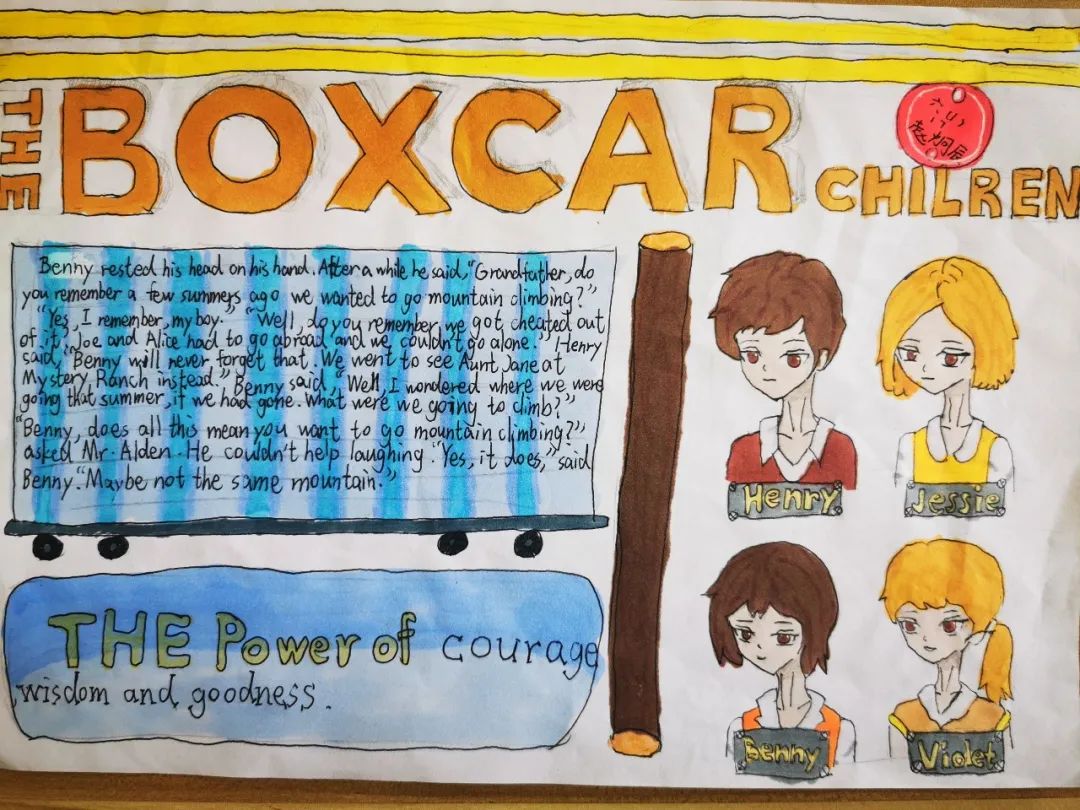 THE BOXCAR CHILREN
Benny rested his head on his hand. After a while he said, "Grandfather, do
you remember a few summers ago we wanted to go mountain climbing?"
"Yes, I remember, my boy." "Well, do you remember we got cheated out
of it? Joe and Alice had to go abroad and we couldn't go alone." Henry
said, "Benny will never forget that. We went to see Aunt Jane at
Mystery Ranch instead." Benny said, "Well, I wondered where we were
going that summer, if we had gone. What were we going to climb?"
"Benny, does all this mean you want to go mountain climbing?"
asked Mr. Alden. He couldn't help laughing. "Yes, it does," said
Benny. "Maybe not the same mountain."
THE Power of courage
wisdom and goodness.
Henry
Jessie
Benny
Violet